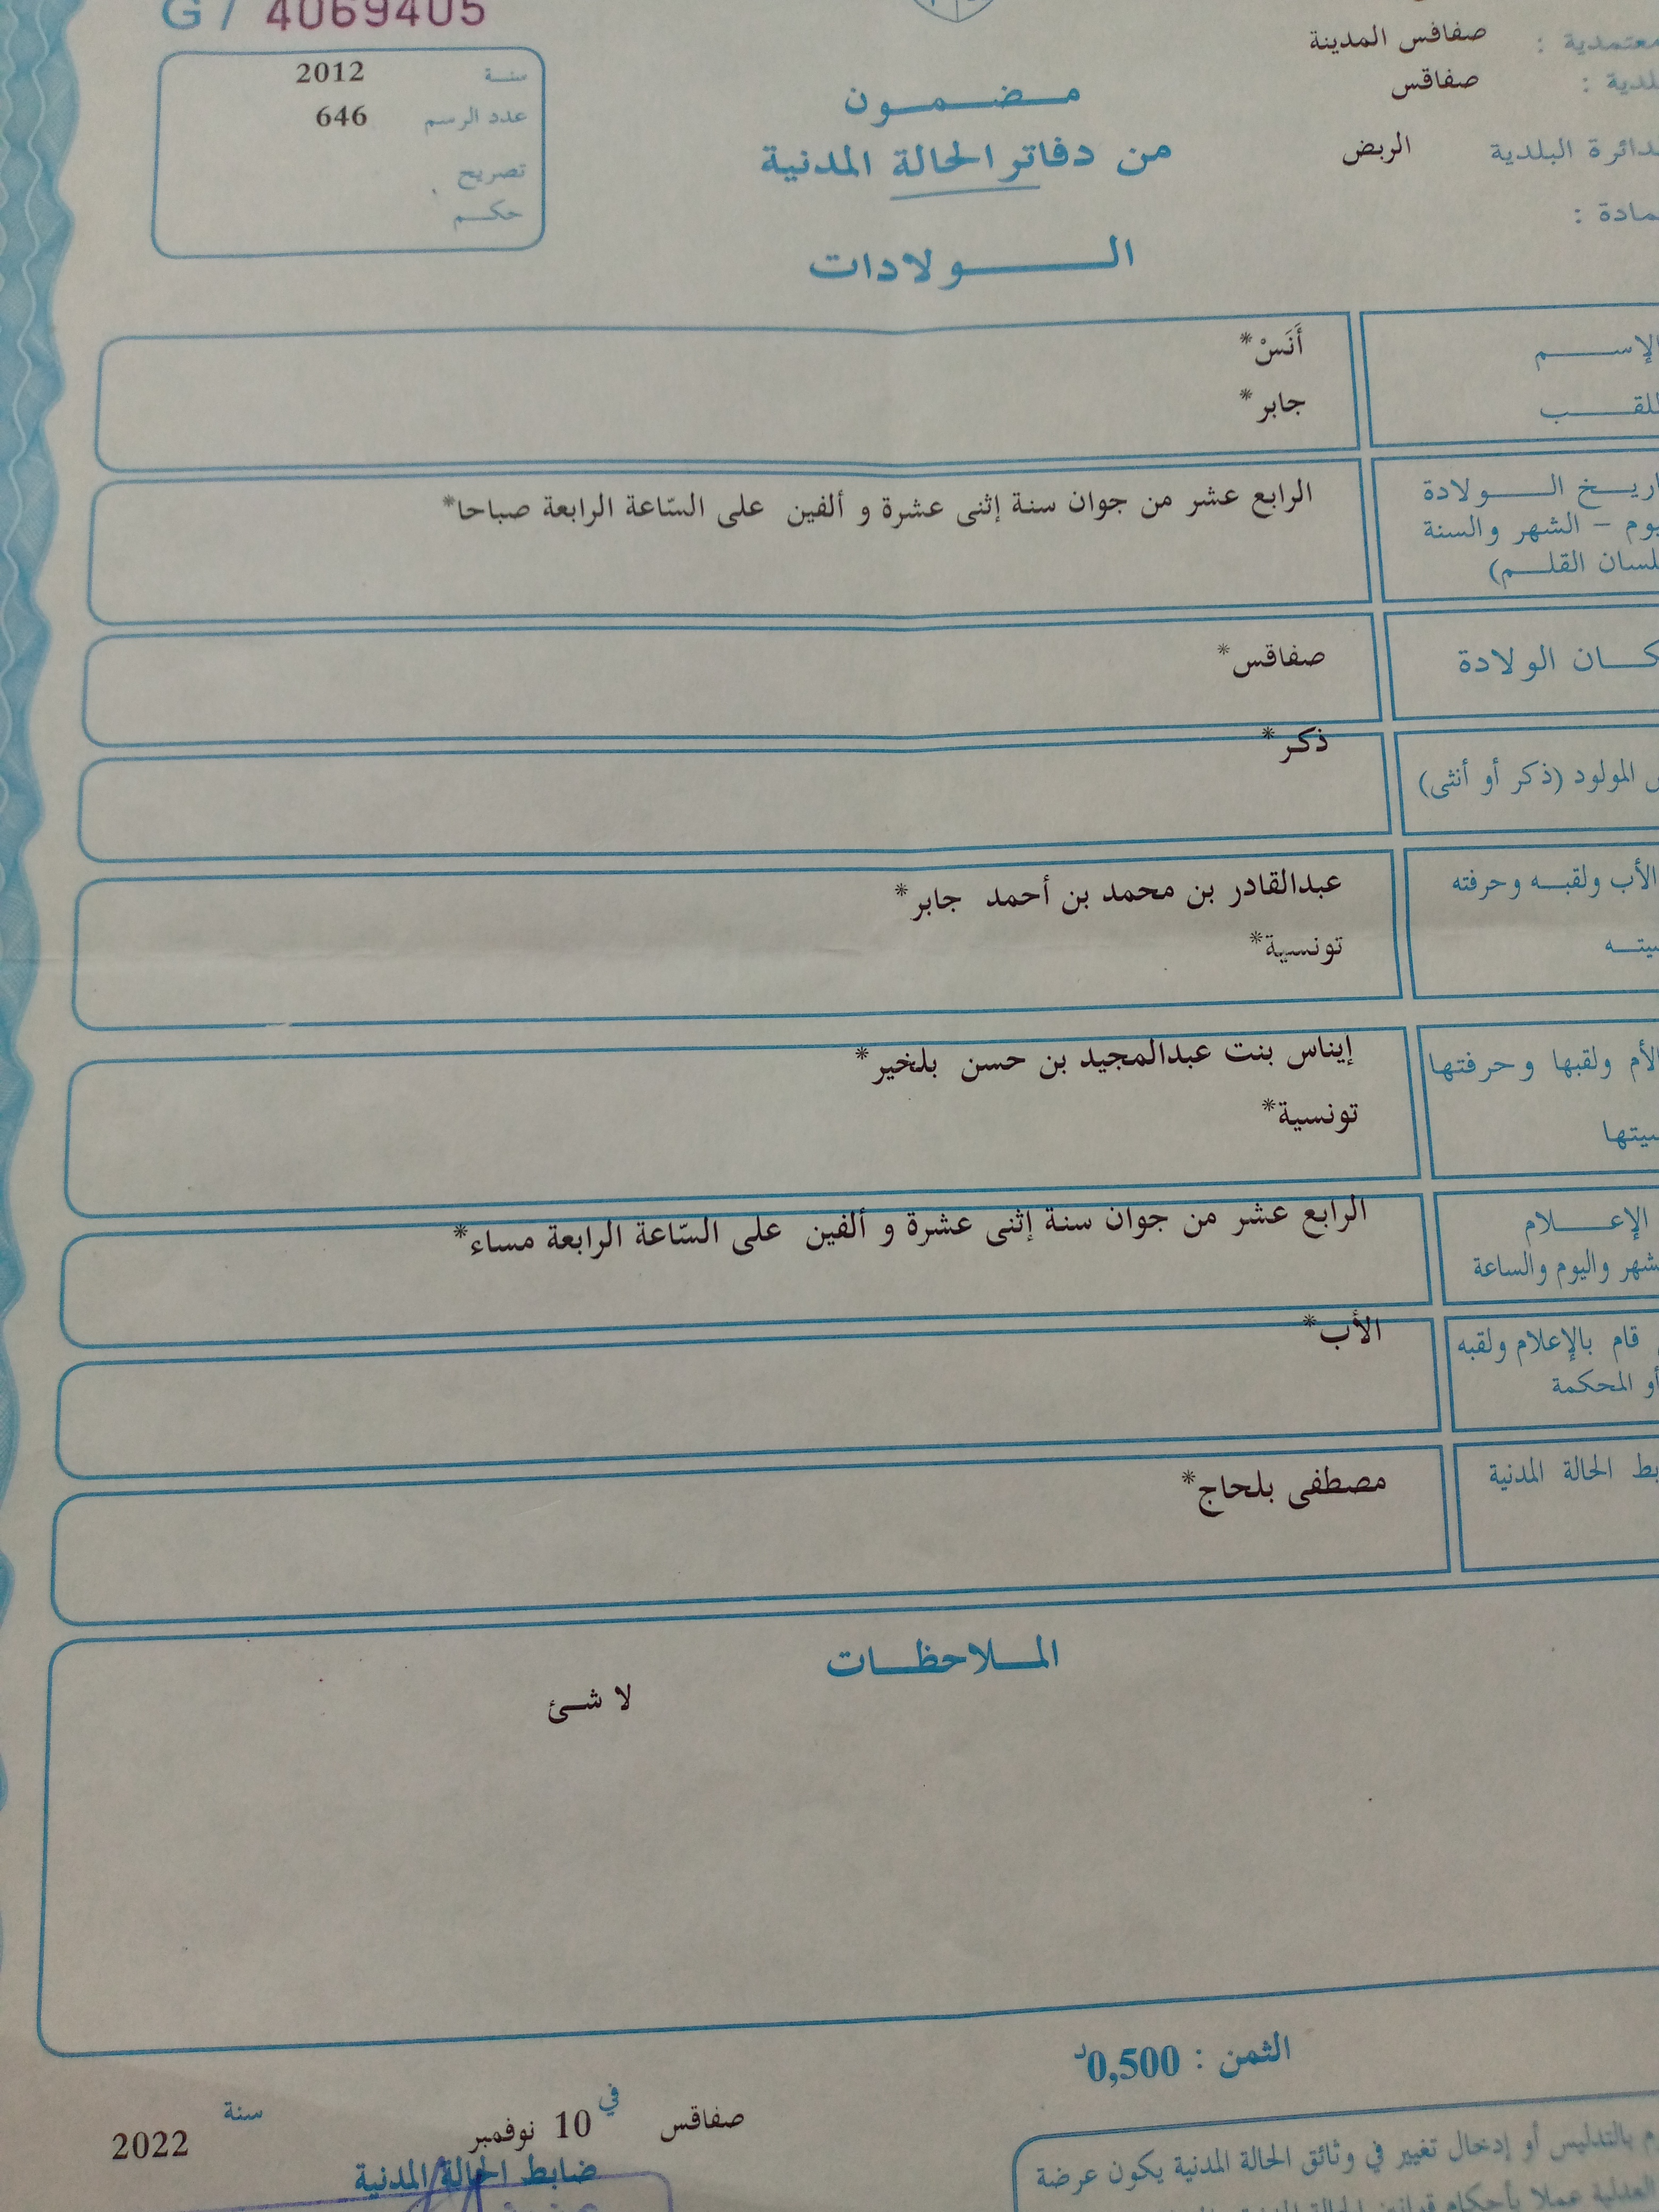 G / 4069405
معتمدية : صفافس المدينة
بلدية : صفاقس
الدائرة البلدية الربض
سنة 2012
عدد الرسم 646
تصريح
حكم
مضمون
من دفاتر الحالة المدنية
الولادات
الإسم أَنَسْ*
اللقب جابر*
تاريخ الولادة الرابع عشر من جوان سنة إثنى عشرة و ألفين على السّاعة الرابعة صباحا*
يوم - الشهر والسنة
بلسان القلم)
مكان الولادة صفاقس*
المولود (ذكر أو أنثى) ذكر*
الأب ولقبه وحرفته عبدالقادر بن محمد بن أحمد جابر*
تونسية*
الأم ولقبها وحرفتها إيناس بنت عبدالمجيد بن حسن بلخير*
تونسية*
الإعلام الرابع عشر من جوان سنة إثنى عشرة و ألفين على السّاعة الرابعة مساء*
والشهر واليوم والساعة
قام بالإعلام ولقبه الأب*
أو المحكمة
ضابط الحالة المدنية مصطفى بلحاج*
الملاحظات
لا شئ
الثمن : 0,500د
صفاقس في 10 نوفمبر سنة 2022
ضابط الحالة المدنية
بالتدليس أو إدخال تغيير في وثائق الحالة المدنية يكون عرضة
العدلية عملا بأحكام قوانين الحالة المدنية